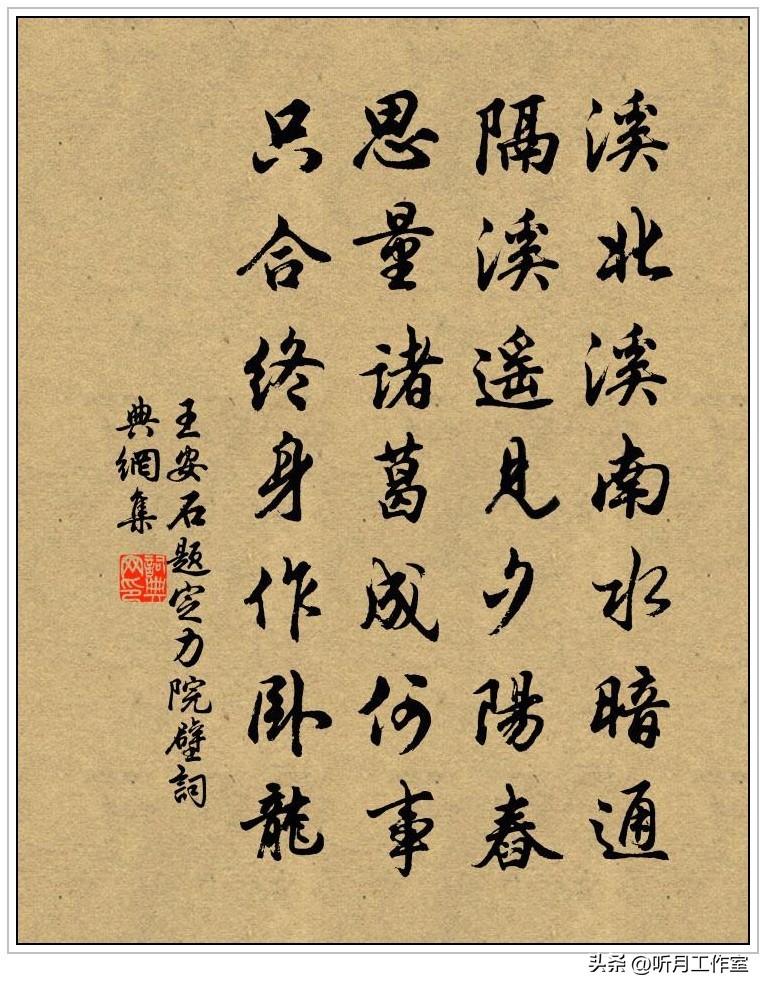 溪北溪南水暗通
隔溪遥見夕陽舂
思量諸葛成何事
只合終身作卧龍
王安石題定力院壁詞
典網集
詞典
网印
头条 @听月工作室